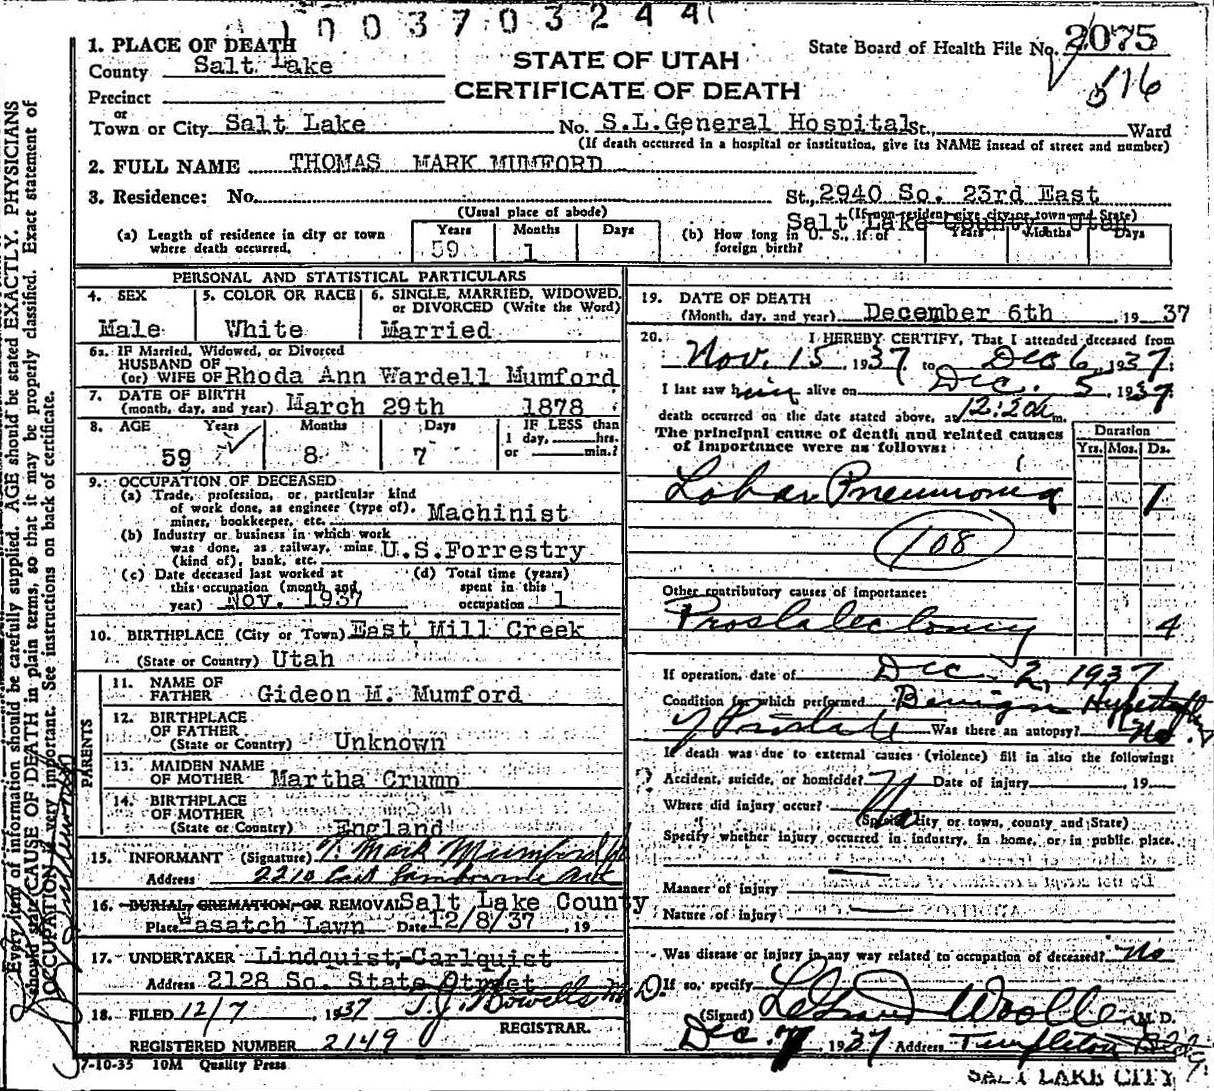 1003703244
1. PLACE OF DEATH
County Salt Lake
Precinct
or
Town or City Salt Lake No. S.L.General Hospital St., Ward
(If death occurred in a hospital or institution, give its NAME insead of street and number)
STATE OF UTAH
CERTIFICATE OF DEATH
State Board of Health File No. 2075
516
2. FULL NAME THOMAS MARK MUMFORD
3. Residence: No. St., 2940 So. 23rd East
(Usual place of abode) Salt Lake County Utah
(If non-resident give city or town and State)
(a) Length of residence in city or town where death occurred. Years 59 Months 1 Days
(b) How long in U. S., if of foreign birth? Years Months Days
PERSONAL AND STATISTICAL PARTICULARS
4. SEX Male
5. COLOR OR RACE White
6. SINGLE, MARRIED, WIDOWED, or DIVORCED (Write the Word) Married
6a. IF Married, Widowed, or Divorced
HUSBAND OF
(or) WIFE OF Rhoda Ann Wardell Mumford
7. DATE OF BIRTH
(month, day, and year) March 29th 1878
8. AGE Years 59 Months 8 Days 7
IF LESS than
1 day, hrs.
or min.?
9. OCCUPATION OF DECEASED
(a) Trade, profession, or particular kind
of work done, as engineer (type of),
miner, bookkeeper, etc. Machinist
(b) Industry or business in which work
was done, as railway, mine
(kind of), bank, etc. U.S.Forrestry
(c) Date deceased last worked at
this occupation (month and
year) Nov. 1937
(d) Total time (years)
spent in this
occupation 1
10. BIRTHPLACE (City or Town) East Mill Creek
(State or Country) Utah
PARENTS
11. NAME OF
FATHER Gideon M. Mumford
12. BIRTHPLACE
OF FATHER
(State or Country) Unknown
13. MAIDEN NAME
OF MOTHER Martha Crump
14. BIRTHPLACE
OF MOTHER
(State or Country) England
15. INFORMANT (Signature) T. Mark Mumford Jr
Address 2210 East
16. BURIAL, CREMATION, OR REMOVAL Salt Lake County
Place Wasatch Lawn Date 12/8/37, 19
17. UNDERTAKER Lindquist-Carlquist
Address 2128 So. State Street
18. FILED 12/7 1937 T.J. Howells M.D.
REGISTRAR.
REGISTERED NUMBER 2149
7-10-35 10M Quality Press
19. DATE OF DEATH
(Month, day, and year) December 6th 19 37
20. I HEREBY CERTIFY, That I attended deceased from
Nov. 15, 1937, to Dec 6, 1937;
I last saw him alive on Dec. 5, 1937
death occurred on the date stated above, at 12:20a m.
The principal cause of death and related causes
of importance were as follows:
Duration
Yrs. Mos. Ds.
Lobar Pneumonia 1
108
Other contributory causes of importance:
Prostatectomy 4
If operation, date of Dec 2, 1937
Condition for which performed Benign Hypertrophy
of Prostate Was there an autopsy? No.
If death was due to external causes (violence) fill in also the following:
Accident, suicide, or homicide? No Date of injury , 19
Where did injury occur?
(Specify city or town, county and State)
Specify whether injury occurred in industry, in home, or in public place.
Manner of injury
Nature of injury
Was disease or injury in any way related to occupation of deceased? No
If so, specify
(Signed) LeGrand Woolley M. D.
Dec. 7, 1937 Address Templeton Bldg.
SALT LAKE CITY
Every item of information should be carefully supplied. AGE should be stated EXACTLY. PHYSICIANS
should state CAUSE OF DEATH in plain terms, so that it may be properly classified. Exact statement of
OCCUPATION is very important. See instructions on back of certificate.